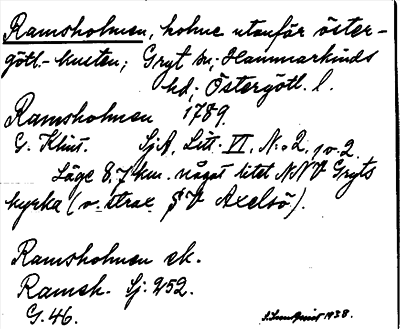 Ramsholmen, holme utanför öster-
götl.-kusten; Gryt sn; Hammarkinds
hd, Östergötl. l.
Ramsholmen 1789.
G. Klint. SjA. Litt. VI, No 2, 1 o 2.
Läge 8,7 km. något litet NNV Gryts
kyrka (v. strax SV Axelsö).
Ramsholmen ek.
Ramsh. Sj. 252.
G. 46. 1938.